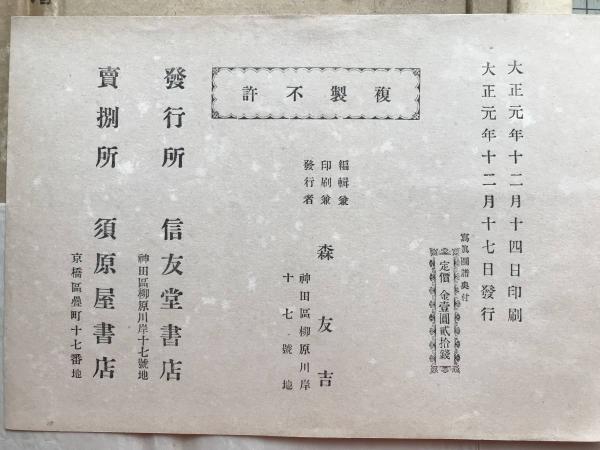 大正元年十二月十四日印刷
大正元年十二月十七日發行
寫眞圖譜奧付
定價 金壹圓貳拾錢
複製不許
編輯兼
印刷兼
發行者
森友吉
神田區柳原川岸
十七號地
發行所 信友堂書店
神田區柳原川岸十七號地
賣捌所 須原屋書店
京橋區疊町十七番地